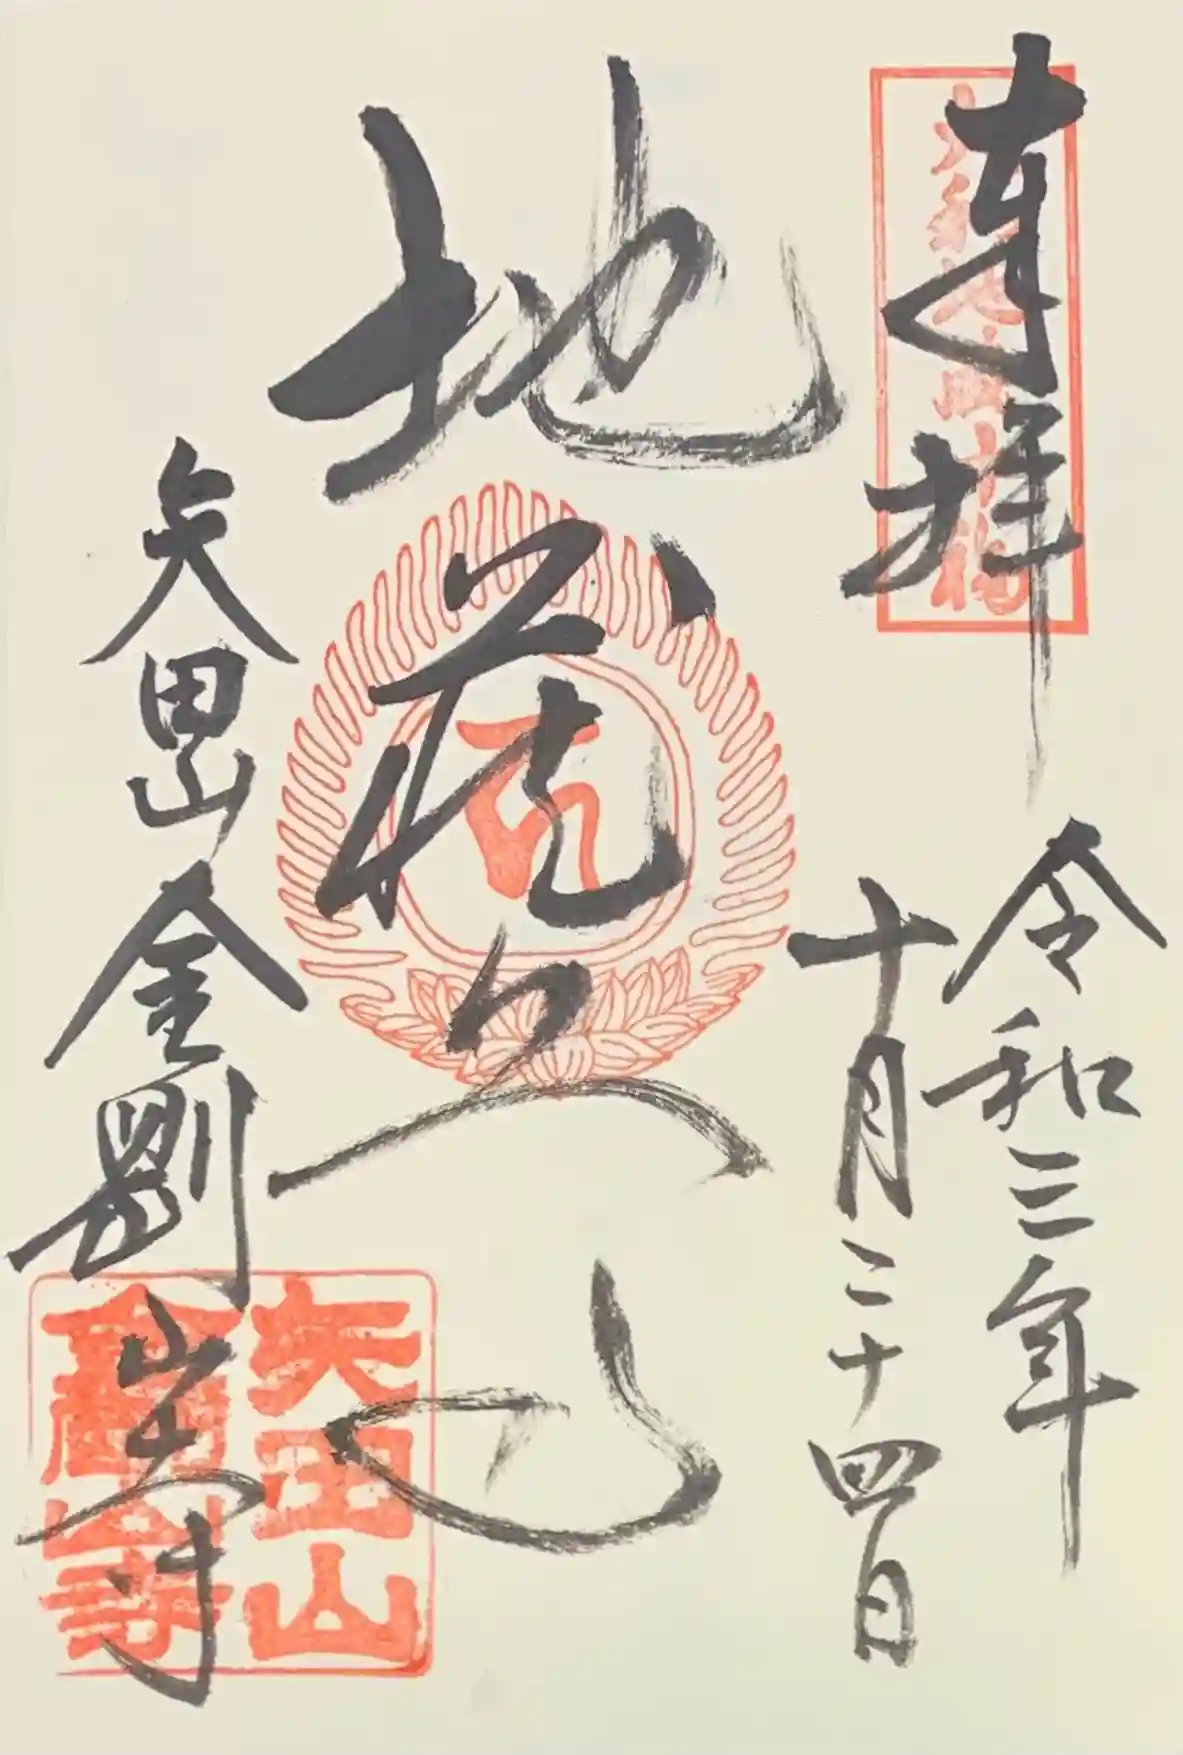 奉拝
令和三年
十月二十四日
地蔵尊
矢田山金剛山寺
矢田山
金剛山寺